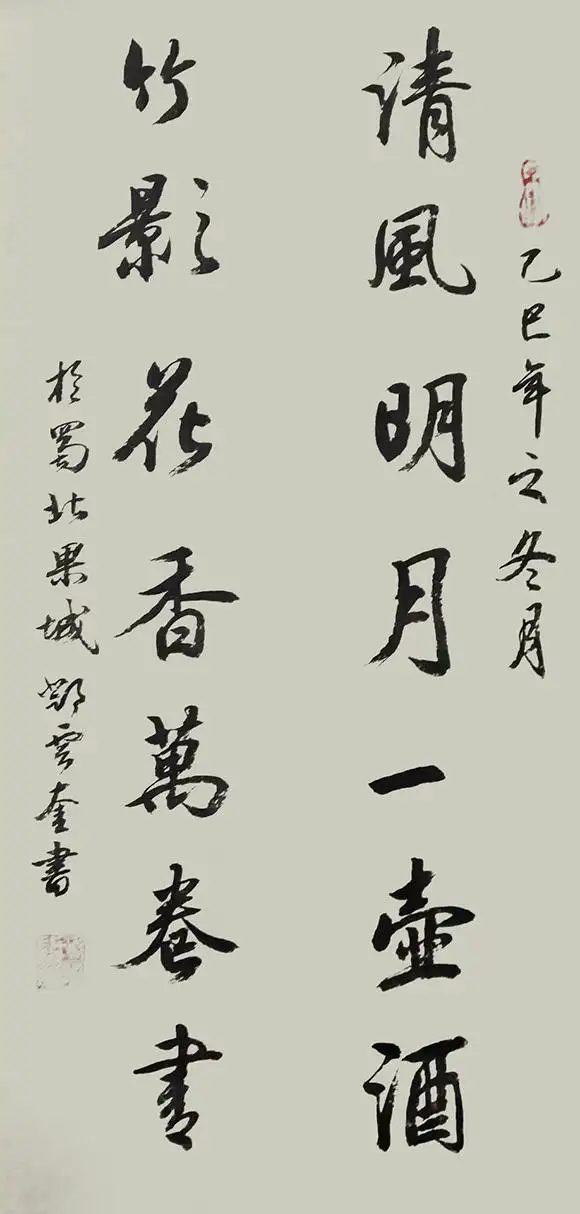 乙巳年之冬月
清風明月一壺酒
竹影花香萬卷書
於蜀北果城鄧雲奎書